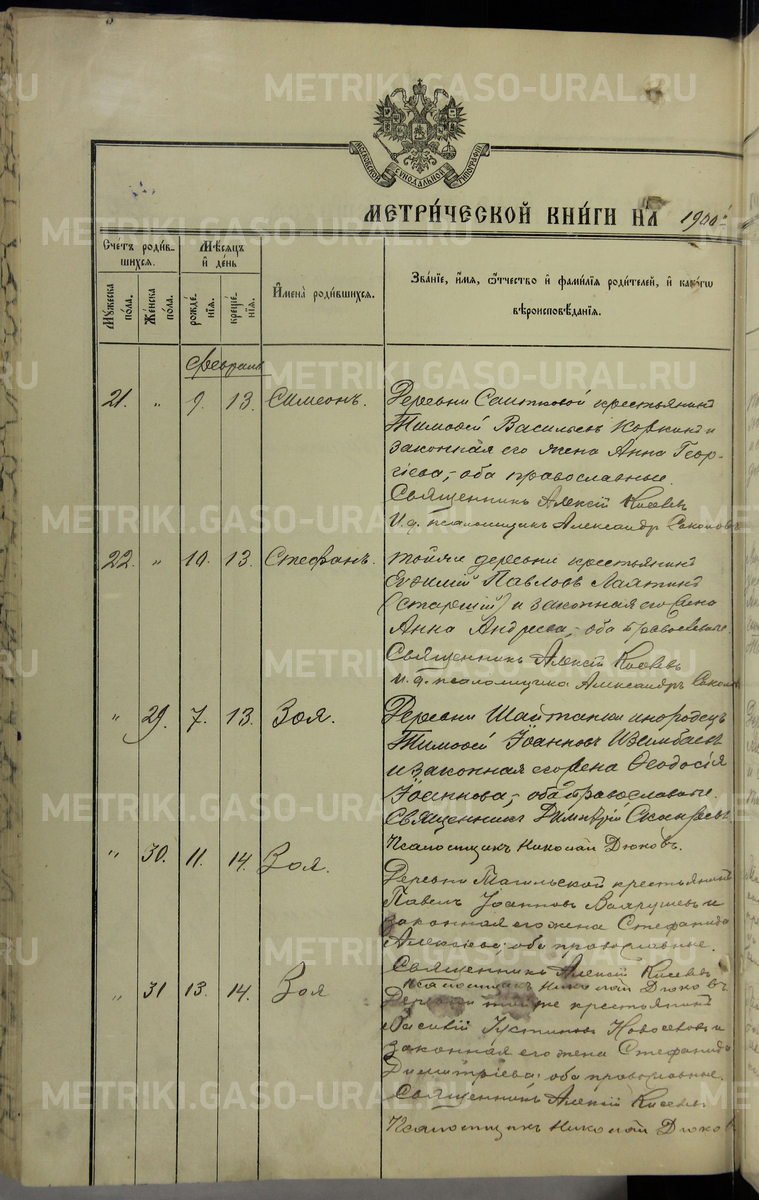 METRIKI.GASO-URAL.RU
МОСКОВСКОЙ СѴНОДАЛЬНОЙ ТИПОГРАФІИ
МЕТРИ́ЧЕСКОЙ КНИ́ГИ НА 1900
Сче́тъ роди́в-
шихся.
Мѣ́сяцъ
и҆ де́нь
Му́жеска
по́ла.
Же́нска
по́ла.
рожде́-
нїѧ.
креще́-
нїѧ.
И҆мена̀ роди́вшихся.
Зва́нїе, и҆́мя, ѻ҆́тчество и҆ фами́лїѧ роди́телей, и҆ како́гѡ
вѣроисповѣ́данїѧ.
Февраль
21. „ 9. 13. Симеонъ.
Деревни крестьянинъ
Тимоѳей Васильевъ Коркинъ и
законная его жена Анна Геор-
гіева, оба православные.
Священникъ Алексій
И. д. псаломщика Александръ
22. „ 10. 13. Стефанъ.
тойже деревни крестьянинъ
Евфимій Павловъ
(старшій) и законная его жена
Анна Андреева, оба православные.
Священникъ Алексій
и. д. псаломщика Александръ
„ 29. 7. 13. Зоя.
Деревни Шайтанки инородецъ
Тимоѳей Іоанновъ Изимбаевъ
и законная его жена Ѳеодосія
Іоаннова, оба православные.
Священникъ Димитрій
Псаломщикъ Николай Дюковъ.
„ 30. 11. 14. Зоя.
Деревни крестьянинъ
Павелъ Іоанновъ и
законная его жена Стефанида
Алексіева; оба православные.
Священникъ Алексій
Псаломщикъ Николай Дюковъ
„ 31 13. 14. Зоя
Деревни тойже крестьянинъ
Василій Іустиновъ и
законная его жена Стефанида
Димитріева; оба православные.
Священникъ Алексій
Псаломщикъ Николай Дюковъ